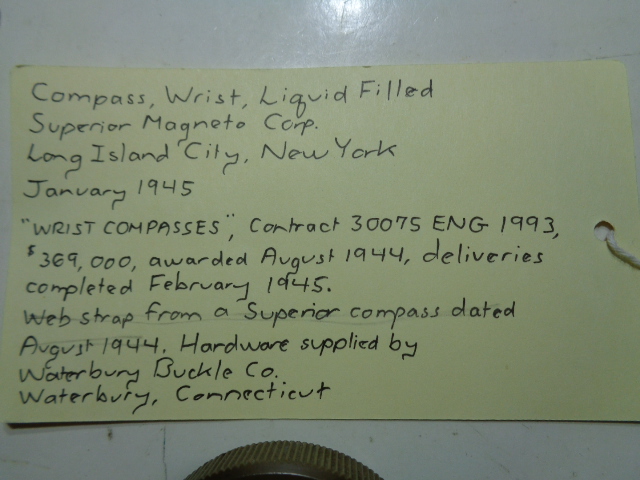 Compass, Wrist, Liquid Filled
Superior Magneto Corp.
Long Island City, New York
January 1945
"WRIST COMPASSES", Contract 30075 ENG 1993,
$369,000, awarded August 1944, deliveries
completed February 1945.
Web strap from a Superior compass dated
August 1944. Hardware supplied by
Waterbury Buckle Co.
Waterbury, Connecticut